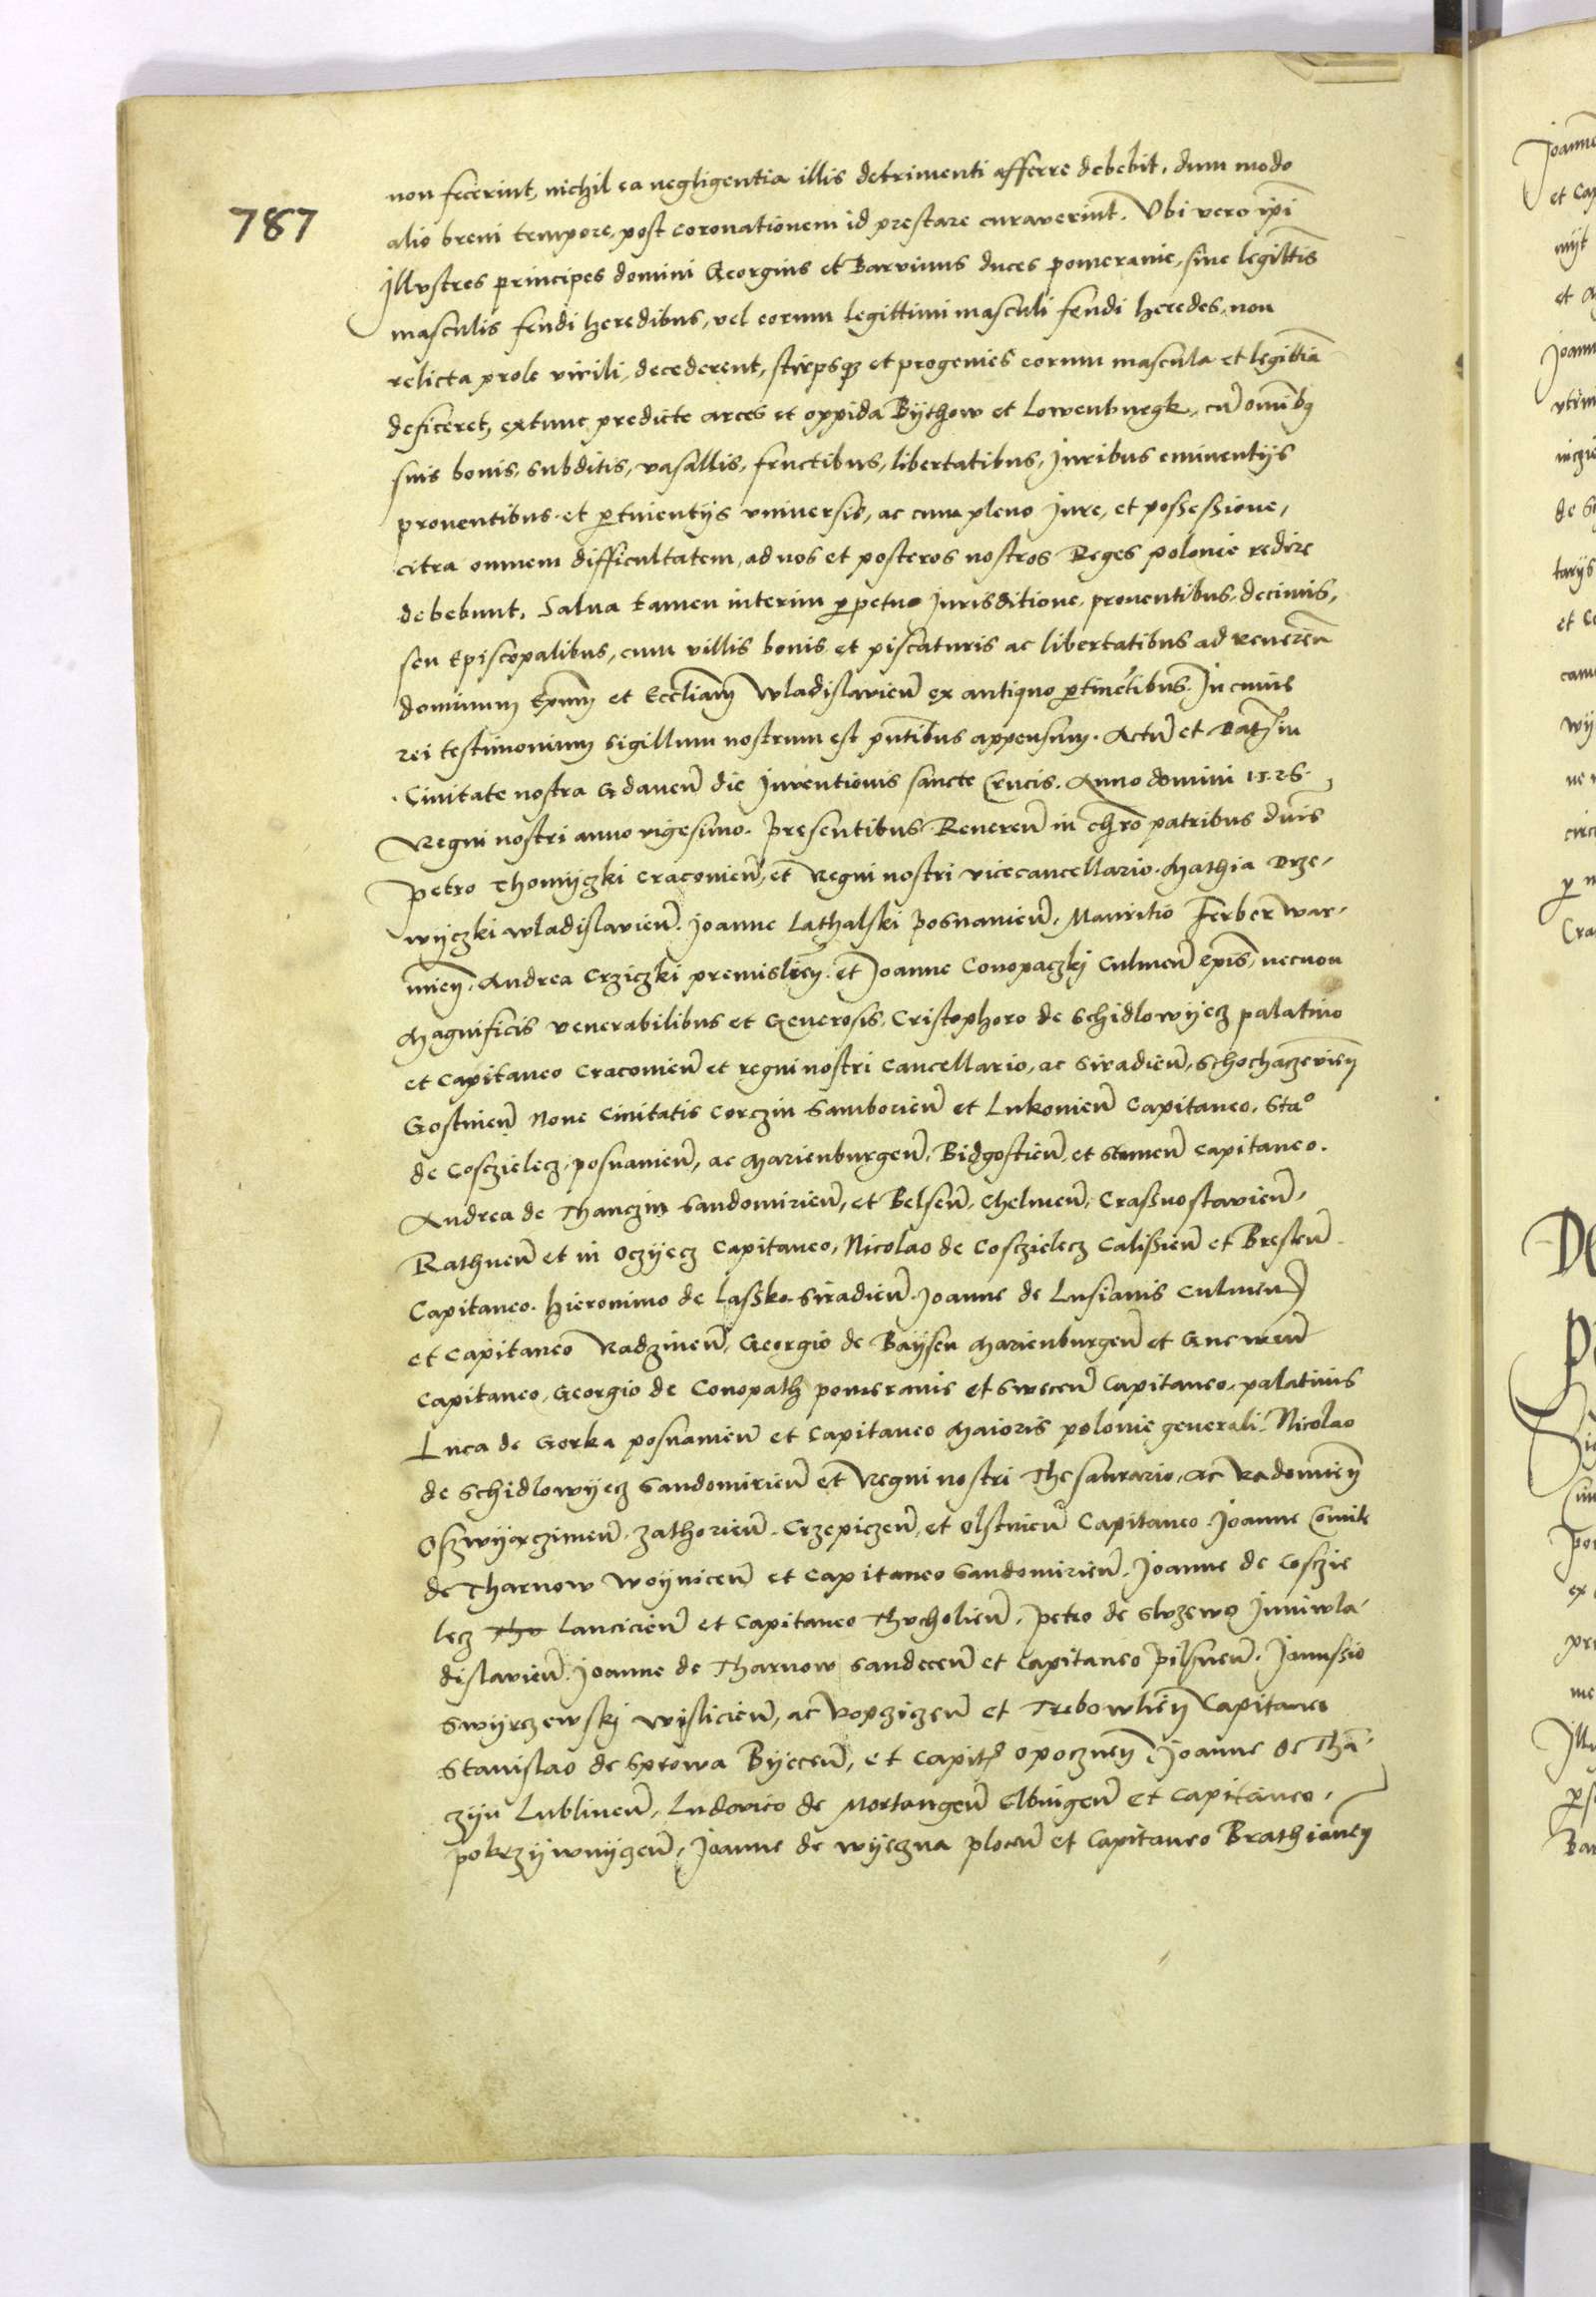 787
non fecerint, nichil ea negligentia illis detrimenti afferre debebit, dum modo
alio breui tempore, post coronationem id prestare curauerint. Vbi vero ipi͂
Illustres principes domini Georgius et Barnimus duces pomeranie, sine legitti͂s
masculis feudi heredibus, vel eorum legittimi masculi feudi heredes, non
relicta prole virili, decederent, stirpsq3 et progenies eorum mascula et legitti͂a
deficeret, extunc predicte arces et oppida Bythow et Lowenburgk, cu͂ omi͂bq
suis bonis, subditis, vasallis, fructibus, libertatibus, Iuribus eminentijs
prouentibus et ꝑtinentijs vniuersis, ac cum pleno Iure, et possessione,
citra omnem difficultatem, ad nos et posteros nostros Reges polonie redire
debebunt, Salua tamen interim ꝑpetuo Iurisditione, prouentibus, decimis,
seu Episcopalibus, cum villis bonis et piscaturis ac libertatibus ad reueren͂
dominum Ep͂um et Eccl͂iam Wladislauien͂ ex antiquo ꝑtine͂tibus. In cuius
rei testimonium Sigillum nostrum est pn͂tibus appensum. Actu͂ et Dat͂ in
Ciuitate nostra Gdanen͂ die Inuentionis sancte Crucis. Anno domini 1526
Regni nostri anno vigesimo. Presentibus Reueren͂ in chr͂o patribus dn͂is
Petro Thomyczki Cracouien͂, et Regni nostri vicecancellario. Mathia Drze-
wyczki Wladislauien͂. Joanne Lathalski Posnanien͂, Mauritio Ferber War-
mien͂, Andrea Crziczki premislien͂. et Joanne Conopaczkj Culmen͂ ep͂is, necnon
Magnificis venerabilibus et Generosis, Cristophoro de Schidlowyecz palatino
et Capitaneo Cracouien͂ et regni nostri Cancellario, ac Siradien͂, Schochaczevien͂
Gostinen͂ Noue Ciuitatis Corczin Samborien͂ et Lukouien͂ Capitaneo. Sta°
de Cosczielecz, posnanien͂, ac Marienburgen͂, Bidgostien͂, et Stumen͂ Capitaneo.
Andrea de Thanczin Sandomirien͂, et Belsen͂, Chelmen͂, Crassnostauien͂,
Rathnen͂ et in Oczyecz Capitaneo, Nicolao de Cosczielecz Calissien͂ et Bresten͂
Capitaneo. Hieronimo de Lassko Siradien͂. Joanne de Lusianis Culmen͂
et Capitaneo Radzinen͂, Georgio de Baysen Marienburgen͂ et Gnewen͂
Capitaneo, Georgio de Conopath pomeranie et Swecen͂ Capitaneo, palatinis
Luca de Gorka posnanien͂ et Capitaneo Maioris polonie generali. Nicolao
de Schidlowyecz Sandomirien͂ et Regni nostri Thesaurario, ac Radomien͂
Oszwyaczimen͂ Zathorien͂ Crzepiczen͂ et Olstinien͂ Capitaneo Joanne Comite
de Tharnow Woynicen͂ et Capitaneo Sandomirien͂. Joanne de Cosczie
lecz Thu Lancicien͂ et Capitaneo Thucholien͂. Petro de Sluzewo Juniwla-
dislauien͂. Joanne de Tharnow Sandecen͂ et Capitaneo Pilsnen͂. Janussio
Swyrczewskj Wislicien͂, ac Ropczicen͂ et Trebowlien͂ Capitaneo
Stanislao de Sprowa Byecen͂, et Capit͂ opocznen͂ Joanne de Tha͂-
czyn Lublinen͂, Ludovico de Mortangen͂ Elbingen͂ et Capitaneo
pokrzywnyczen͂, Joanne de Wyeczna plocen͂ et Capitaneo Brathianen͂